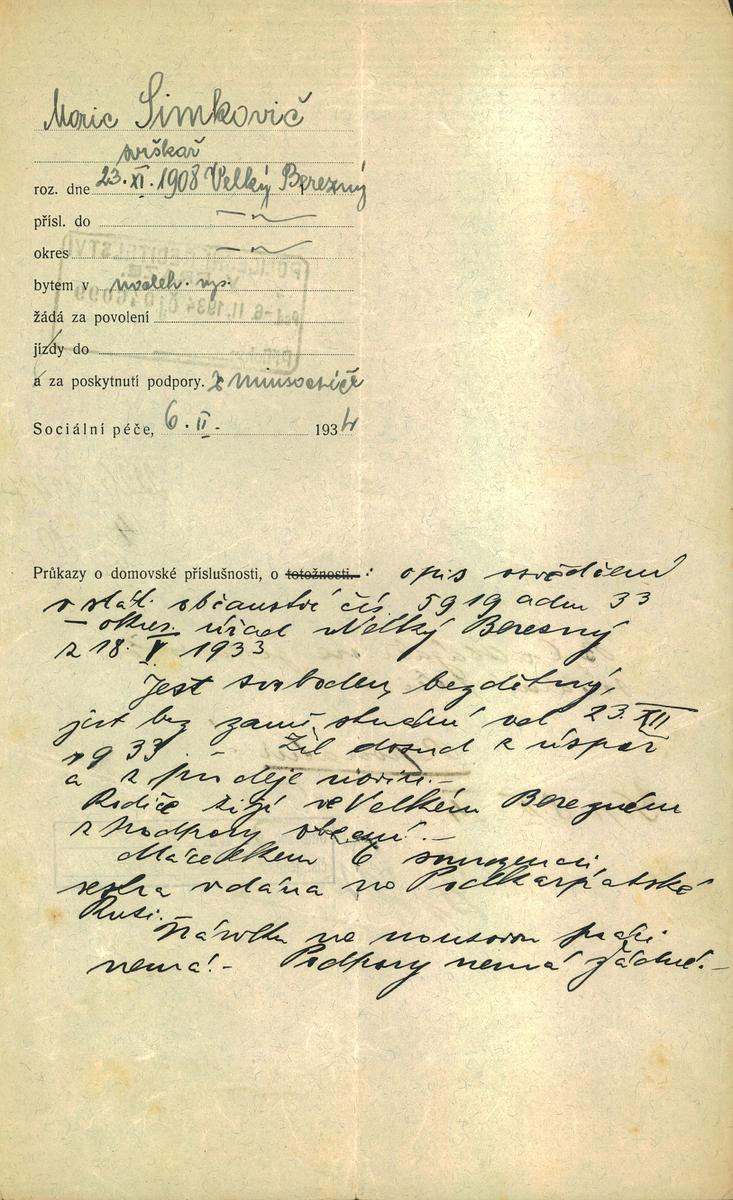 Moric Simkovič
svrškař
roz. dne 23. XI. 1908 Velký Berezný
přísl. do — " —
okres — " —
bytem v nocleh.
žádá za povolení
jízdy do
a za poskytnutí podpory.
Sociální péče, 6. II. 1934
Průkazy o domovské příslušnosti, o totožnosti. : opis osvědčení
o stát. občanství čís. 5919 adm 33
okres. úřad Velký Berezný
z 18. V 1933
Jest svoboden, bezdětný,
jest bez zaměstnání od 23. XII
1933. Žil dosud z úspor
a z
Rodiče žijí ve Velkém Berezném
z podpory obecní.
Má celkem 6 sourozenců,
sestra vdána na Podkarpatské
Rusi.
Nároku na
nemá! - Podpory nemá žádné. -